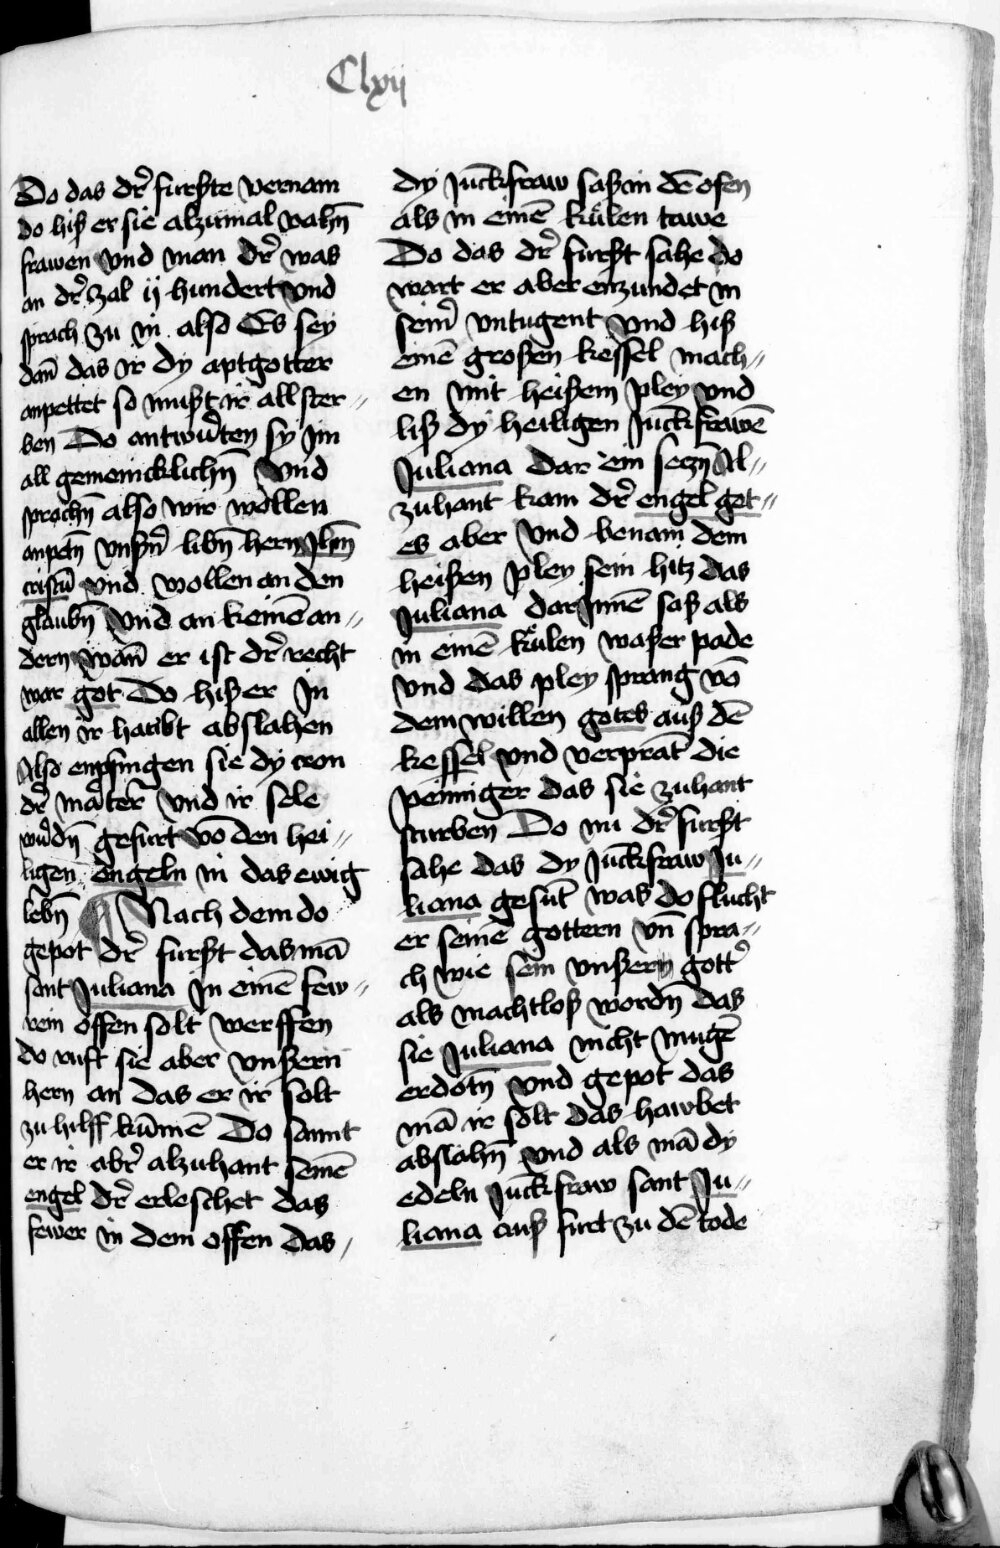 Clxij
Do das dr̉ furßte vernam
do hiß er sie alzumal vahn̄
frawen vnd man dr̉ was
an dr̉ zal ij hundert vnd
sprach zu in also Es sey
dan̄ das ir dy aptgotter
anpettet so mußt ir all ster〃
ben Do antwu̓rten sy Im
all gemenicklichn̄ vnd
sprochn̄ also wir wöllen
anpetn̄ vnßn̄ libn̄ hern Jhm̄
cristū vnd wollen an den
glaubn̄ vnd an keinē an〃
dern wan̄ er ist dr̉ recht
war got Do hiß er In
allen ir haubt abslahen
Also enpfingen sie dy cron
dr̉ märter̉ vnd ir sele
wu̓dn̄ gefurt vō den hei〃
ligen engeln in das ewig
lebn̄ Nach dem do
gepot dr̉ furßt das mā
sant Juliana In einē few〃
rein offen solt werffen
do ruft sie aber vnßern
hern an das er ir solt
zu hilff kūmē Do sannt
er ir abr̉ alzuhant seinē
engel dr̉ erleschet das
fewer in dem offen das〃
dy Juckfraw saß in dē ofen
als in einē kůlen tawe
Do das dr̉ furßt sahe do
wart er aber enzundet in
seinr̉ vntugent vnd hiß
einē großen kessel mach〃
en mit heißem pley vnd
liß dy heiligen Juckfrawē
Juliana dar ein seczn̄ Al〃
zuhant kam dr̉ engel got〃
es aber vnd benam dem
heißen pley sein hitz das
Juliana dar Innē saß als
in einē kůlen waßer pade
vnd das pley sprang vō
dem willen gotes auß dē
kessel vnd verprāt die
peiniger das sie zuhant
sturben Do nu dr̉ furßt
sahe das dy Juckfraw Ju〃
liana gesūt was do flucht
er seinē gottern vn̄ spra〃
ch wie sein vnßern gottr̉
als machtloß wordn̄ das
sie Juliana nicht mugē
erdotn̄ vnd gepot das
mā ir solt das hawbet
abslahn̄ vnd als mā dy
edeln Juckfraw sant Ju〃
liana auß furt zu dē tode